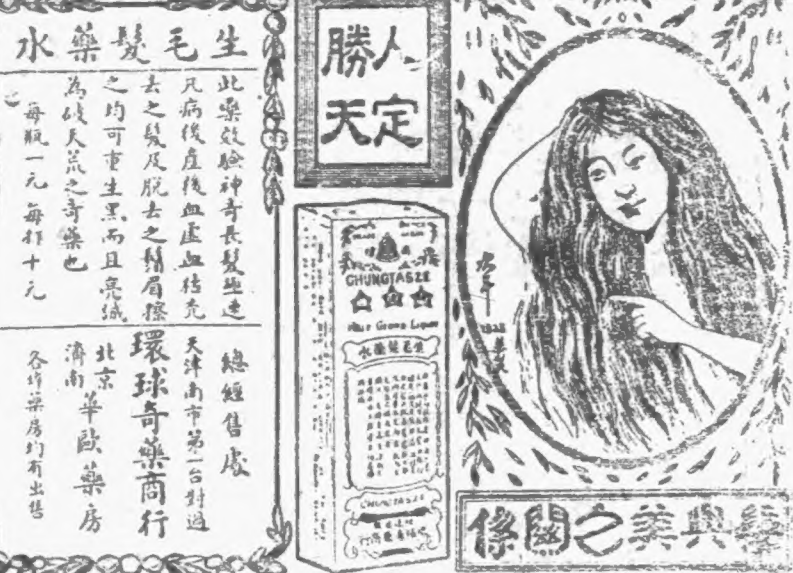 生毛髮藥水
此藥效驗神奇長髮極速
凡病後產後血虛血枯禿
去之髮及脫去之鬚眉擦
之均可重生黑而且亮誠
為破天荒之奇藥也
每瓶一元 每打十元
總經售處
天津南市第一台對過
環球奇藥商行
北京
濟南
華歐藥房
各埠藥房均有出售
人定
勝天
CHUNGTASZE
Hair Grows Liquor
生毛髮藥水
CHUNGTASZE
1928
髮與美之關係